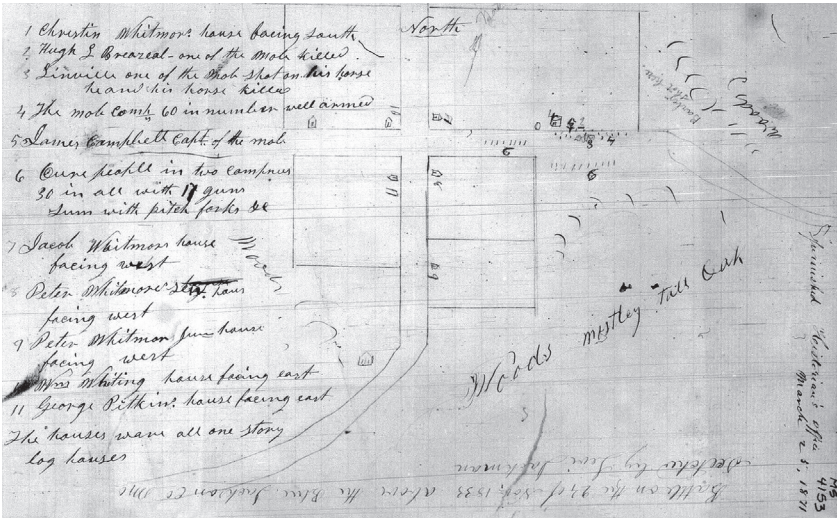 North
1 Christin Whitmors. house facing South
2 Hugh L Breazeal - one of the mob killed.
3 Linville one of the mob shot on his horse
he and his horse killed
4 The mob comp. 60 in number well armed
5 James Campbell Capt. of the mob
6 Oure people in two companes
30 in all with 17 guns
Sum with pitch forks &c
7 Jacob Whitmors house
facing west
8 Peter Whitmores haus
facing west
9 Peter Whitmor Jun house
facing west
Wm Whiting house facing east
11 George Pitkins. house facing east
The houses ware all one story
log houses
Woods
Woods
Woods mostley tall Oak
Battle on the 4 of Nov, 1833 above the Blue Jackson Co Mo
Sketched by Levi Jackman
furnished Historian's office
March 25, 1871
MS
4153